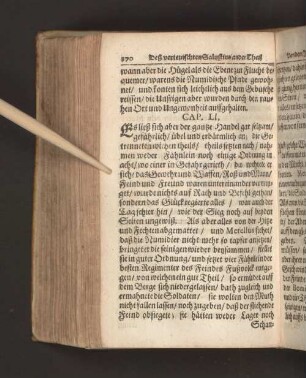 270 Deß verteutschten Salustius ander Theil
wann aber die Hügel als die Ebene zur Flucht be-
quemer / warens die Numidische Pferde gewoh-
net / und konten sich leichtlich aus dem Gebüsche
reissen / die Unsrigen aber wurden durch den rau-
hen Ort und Ungewonheit auffgehalten.
CAP. LI.
Es ließ sich aber der gantze Handel gar seltzam /
gefährlich / übel und erbärmlich an; die Ge-
trenneten wolten theils / theils setzten nach / nah-
men weder Fähnlein noch einige Ordnung in
acht / wo einer in Gefahr gerieth / da wehrete er
sich; das Gewehr und Waffen / Roß und Man /
Feind und Freund waren untereinander /
wurde nichts aus Rath und Befehl gethan /
sondern das Glück regierte alles / wann auch der
Tag schier hin / wie der Sieg noch auf beyden
Seiten ungewiß. Als aber alles von der Hitz
und Fechten abgemattet / und Metellus siehet /
daß die Numidier nicht mehr so tapfer ansetzen /
bringet er die seinigen wieder beysammen / stellet
sie in guter Ordnung / und setzet vier Fähnlein der
besten Regimenter des Feindes Fußvolck entge-
gen / von welchem ein gut Theil / so ermüdet auf
dem Berge sich niedergelassen / bath zugleich und
ermahnete die Soldaten / sie wolten den Muth
nicht fallen lassen / noch zugeben / daß der fliehende
Feind obsiegete; sie hätten weder Lager noch
Schan-